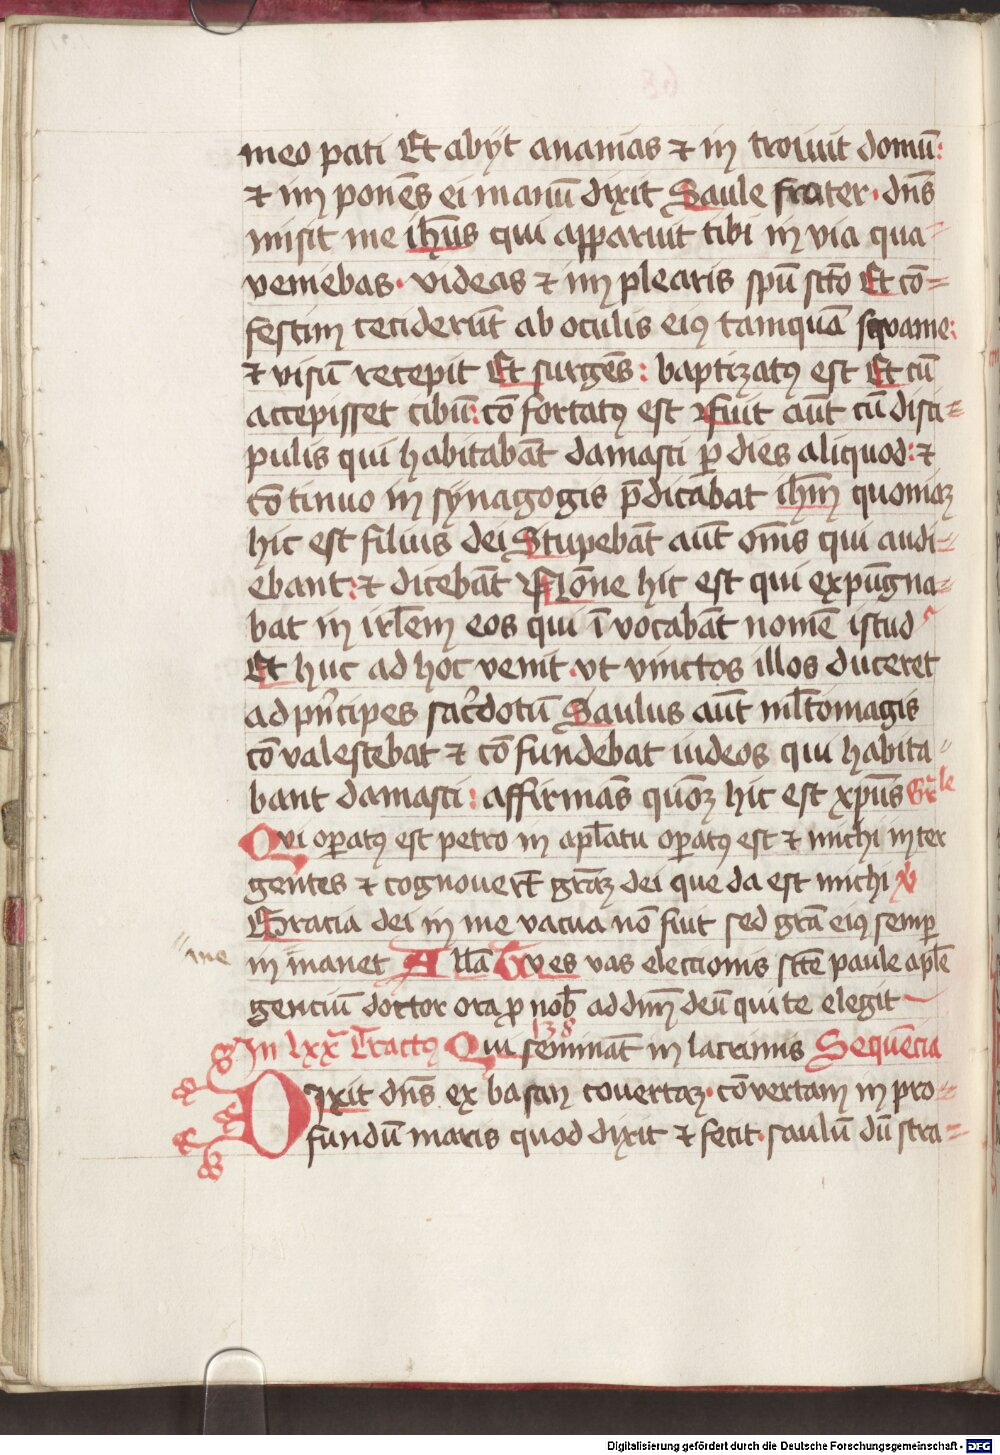 meo pati Et abijt ananias ⁊ in troiuit domū:
⁊ im ponēs ei manū dixit Saule frater · dn̄s
misit me ih̄us qui apparuit tibi in via qua
veniebas · videas ⁊ im plearis spū scto Et cō=
festim ceciderūt ab oculis eiꝰ tamquā squame:
⁊ visū recepit Et surgēs: baptizatꝰ est Et cū
accepisset cibū: cō fortatꝰ est Fuit aūt cū disci=
pulis qui habitabāt damasci ꝑ dies aliquod: ⁊
cō tinuo in synagogis p̄dicabat ih̄m quoniaꝫ
hic est filius dei Stupebāt aūt om̄s qui audi=
ebant: ⁊ dicebāt Nōne hic est qui expūgna=
bat in irl̄em eos qui ī vocabāt nomē istud
Et huc ad hoc venit · vt vinctos illos duceret
ad pn̄cipes sac̄dotū Saulus aūt ml̄tomagis
cō valescebat ⁊ cō fundebat iudeos qui habita
bant damasci: affirmās quōꝫ hic est xp̄us Gr̄le
Qvi oꝑatꝰ est petro in apl̄atu oꝑatꝰ est ⁊ michi inter
gentes ⁊ cognouer̄t gr̄aꝫ dei que da est michi v̄
Gracia dei in me vacua nō fuit sed gr̄a eiꝰ semꝑ
me
in manet All̄a Tv es vas electionis sc̄te paule apl̄e
genciū doctor ora ꝓ nob̄ ad dn̄m deū qui te elegit
In lxx Tractꝰ Qui semināt in lacrimis Sequēcia
138
Dixit dn̄s ex basan covertaꝫ · cōvertam in pro=
fundū maris quod dixit ⁊ fecit · saulū dū stra=
Digitalisierung gefördert durch die Deutsche Forschungsgemeinschaft - DFG